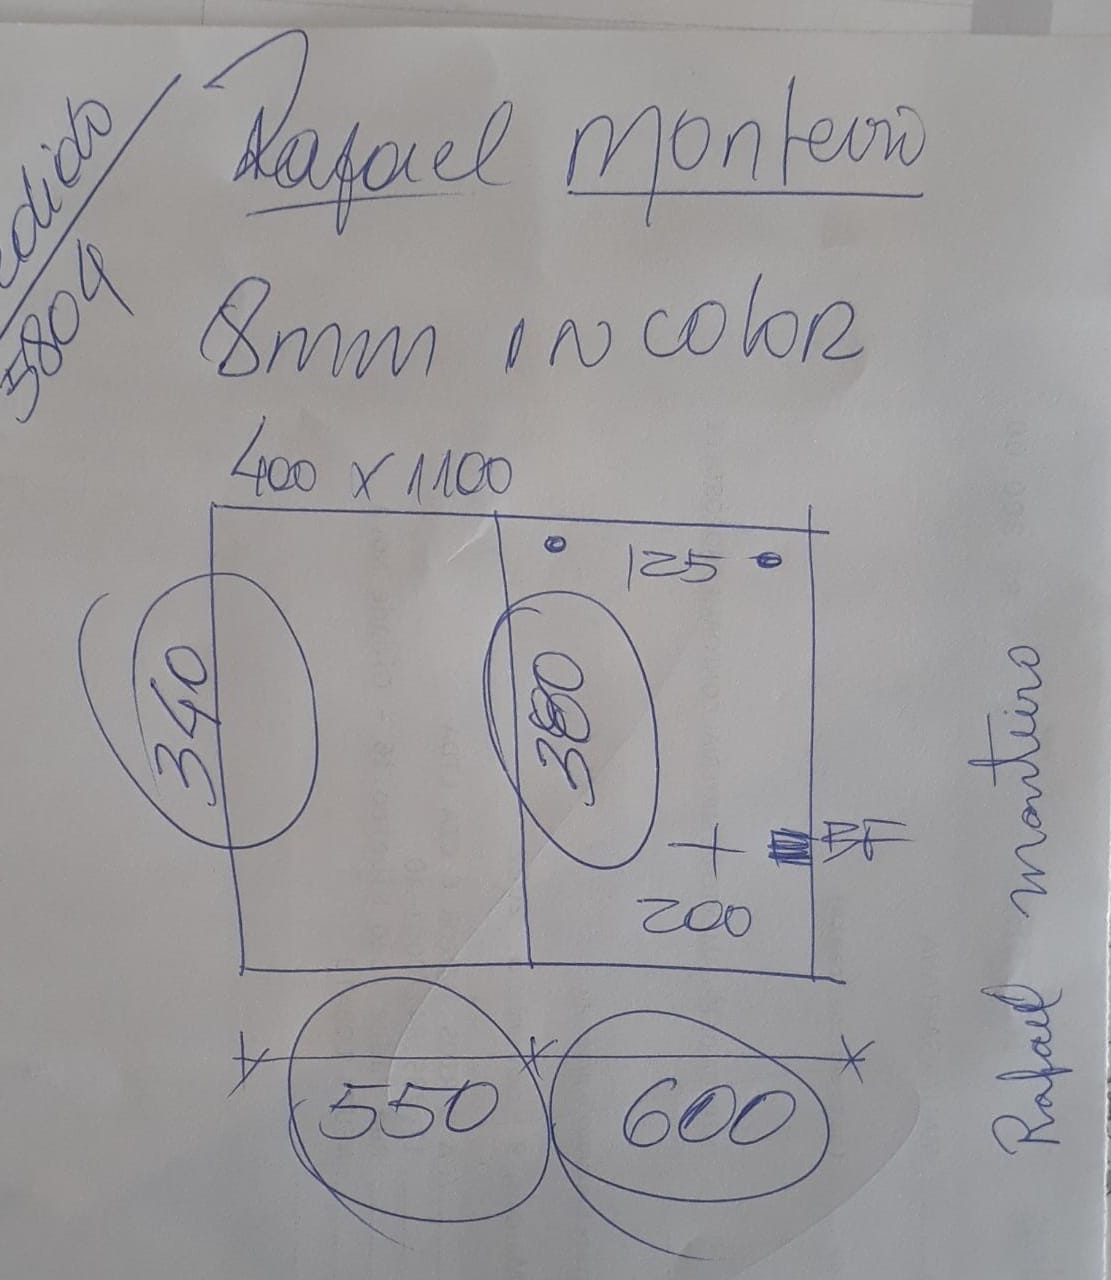 Rafael Monteiro
5804
8mm INCOLOR
400 x 1100
125
340
380
BF
200
550
600
Rafael monteiro